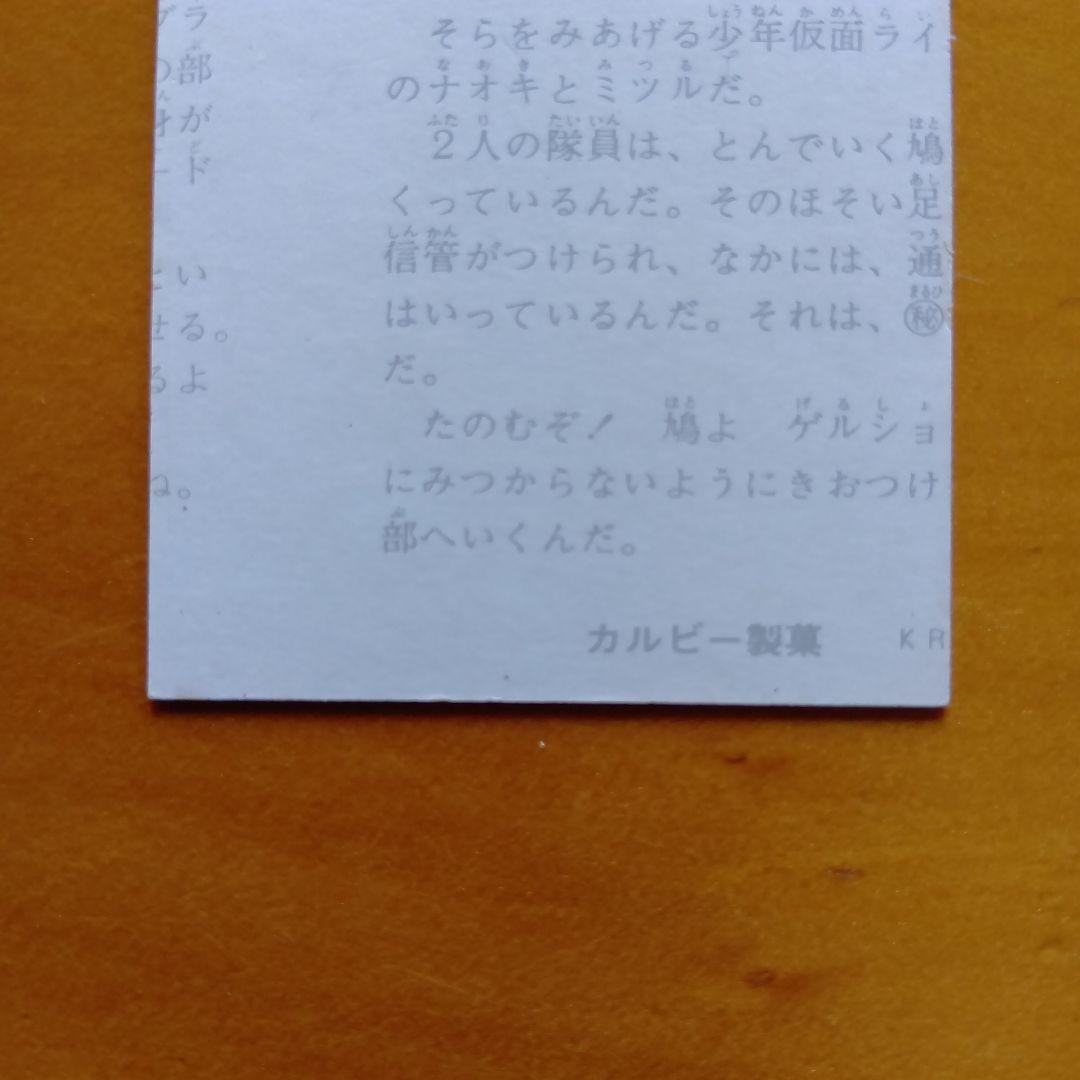 ラ
部
が
ド
い
せる。
るよ
ね。
そらをみあげる少年仮面ライ
のナオキとミツルだ。
2人の隊員は、とんでいく鳩
くっているんだ。そのほそい足
信管がつけられ、なかには、通
はいっているんだ。それは、㊙
だ。
たのむぞ! 鳩よ ゲルショ
にみつからないようにきおつけ
部へいくんだ。
カルビー製菓 KR